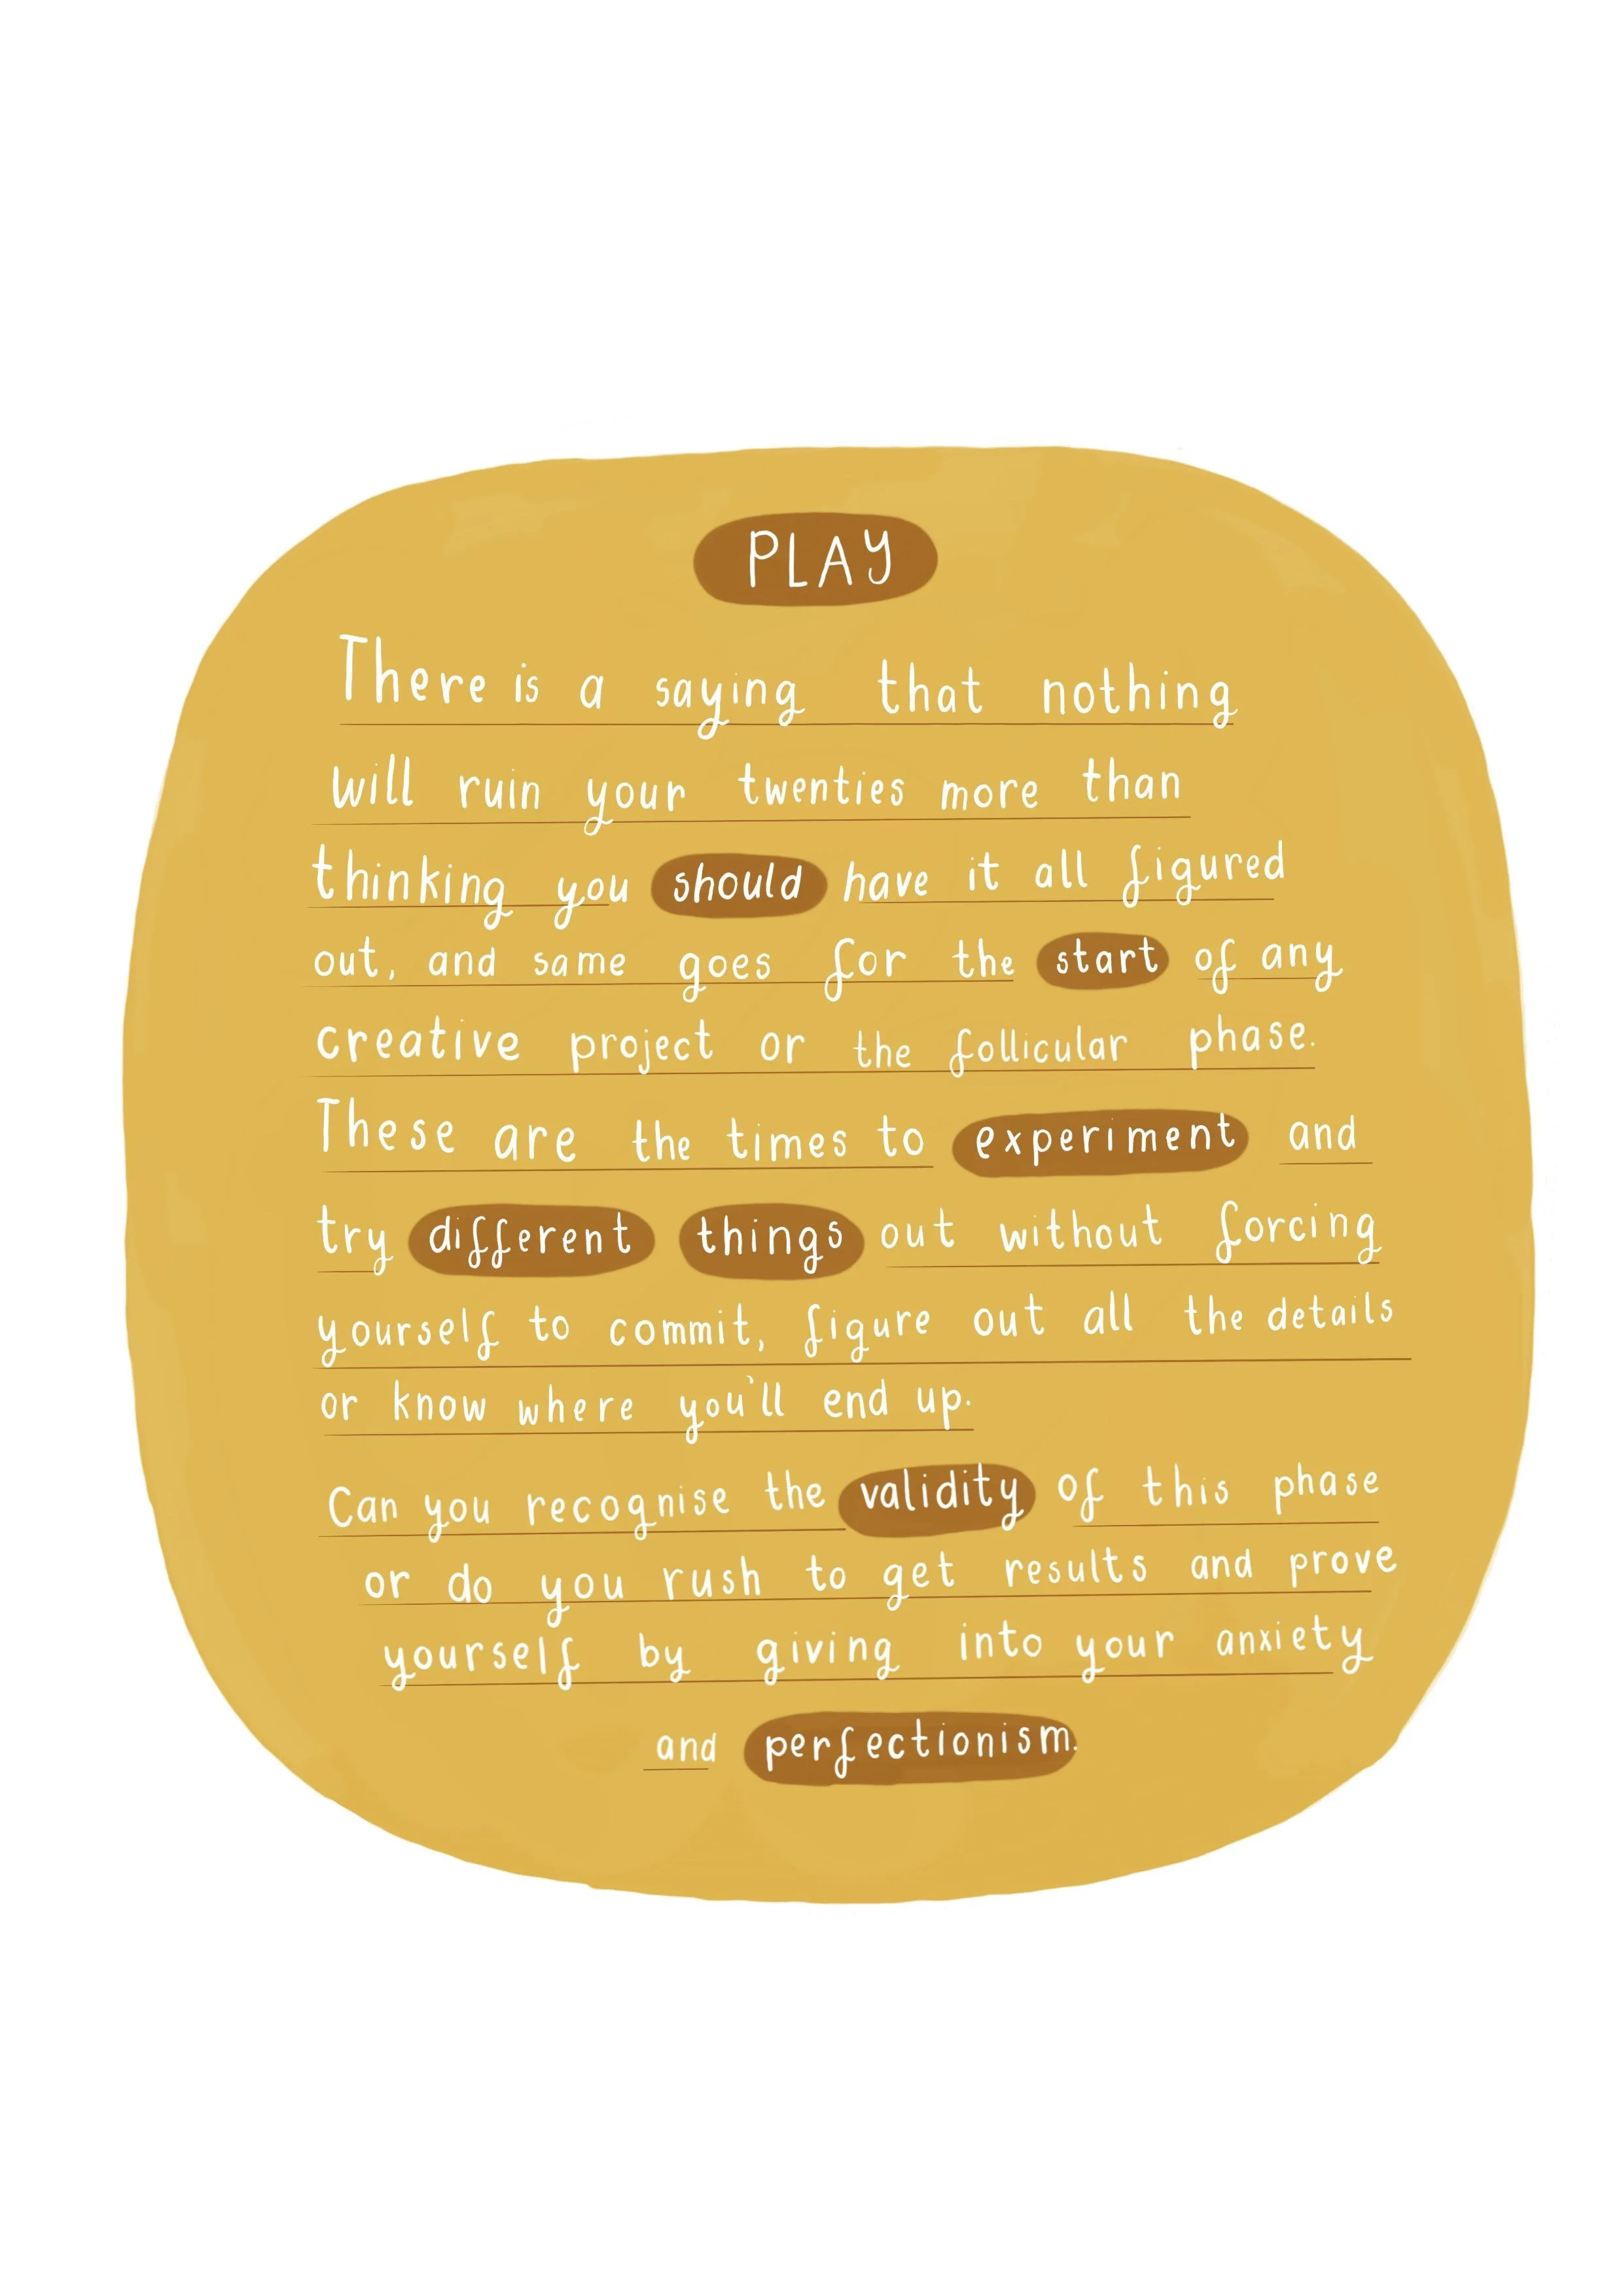 PLAY
There is a saying that nothing
will ruin your twenties more than
thinking you should have it all figured
out, and same goes for the start of any
creative project or the follicular phase.
These are the times to experiment and
try different things out without forcing
yourself to commit, figure out all the details
or know where you'll end up.
Can you recognise the validity of this phase
or do you rush to get results and prove
yourself by giving into your anxiety
and perfectionism.